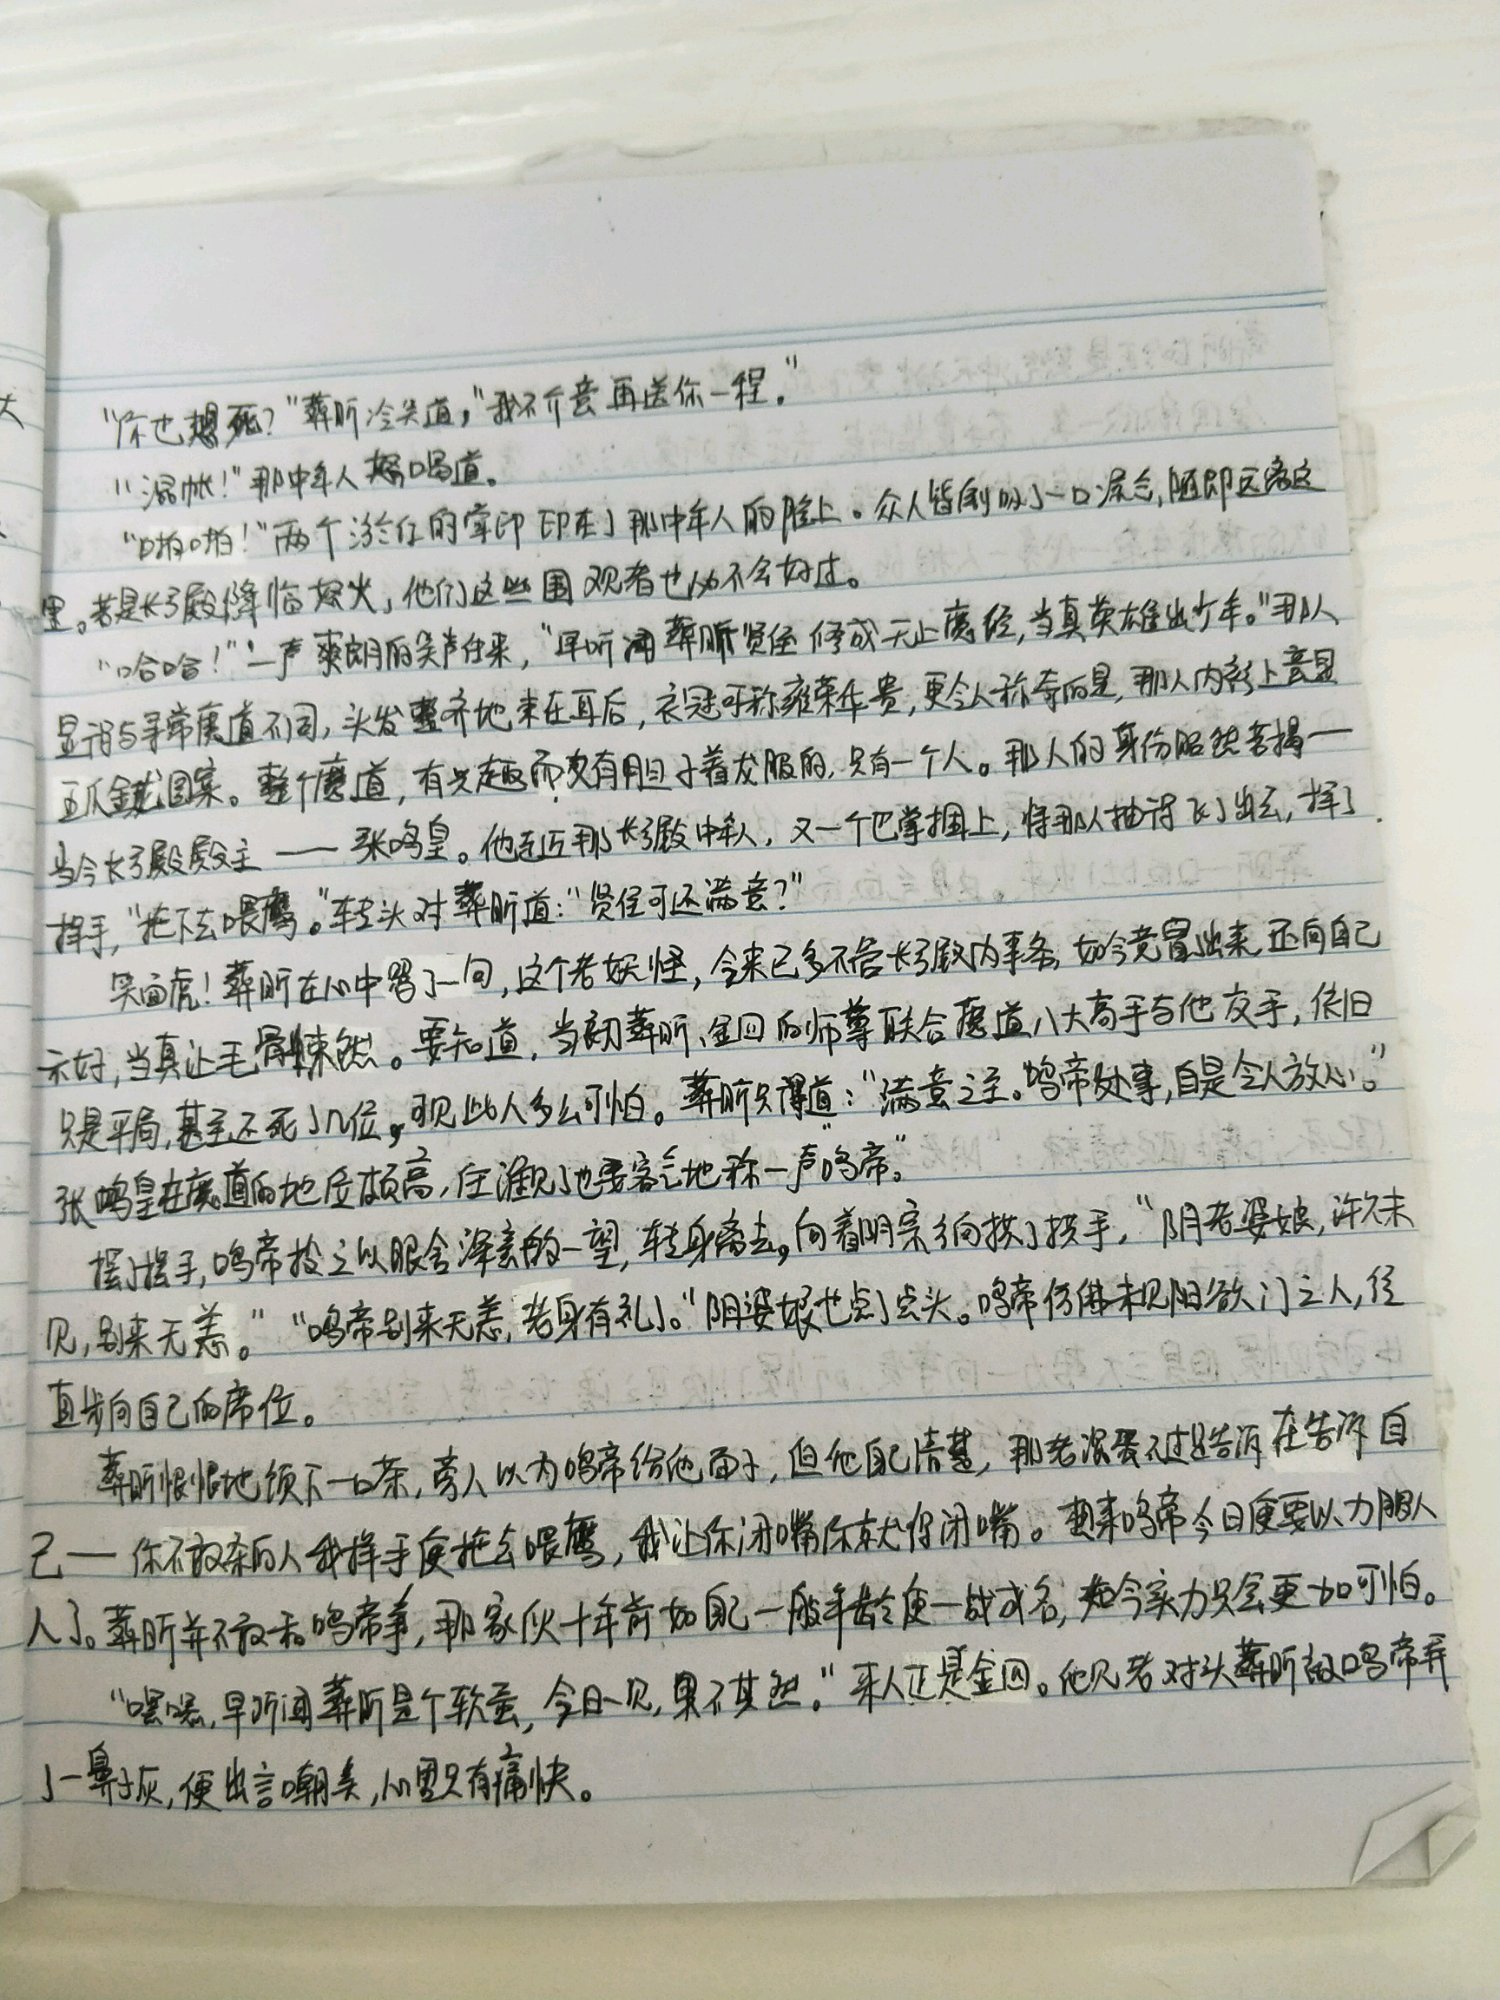 “你也想死？”葬昕冷笑道，“我不介意再送你一程。”
“混帐！”那中年人怒喝道。
“啪啪！”两个淤红的掌印印在了那中年人的脸上。众人皆倒吸了一口凉气，随即远离这
里。若是长弓殿降临怒火，他们这些围观者也必不会好过。
“哈哈！”一声爽朗的笑声传来，“早听闻葬昕贤侄修成无上魔经，当真英雄出少年。”那人
显得与寻常魔道不同，头发整齐地束在耳后，衣冠可称雍荣华贵，更令人称奇的是，那人内衫上竟是
五爪金龙图案。整个魔道，有兴趣而更有胆子着龙服的，只有一个人。那人的身份昭然若揭一
当今长弓殿殿主——张鸣皇。他走近那长弓殿中年人，又一个巴掌掴上，将那人抽得飞了出去，挥了
挥手，“拖下去喂鹰。”转头对葬昕道：“贤侄可还满意？”
笑面虎！葬昕在心中骂了一句，这个老妖怪，今来已多不管长弓殿内事务，如今竟冒出来还向自己
示好，当真让毛骨悚然。要知道，当初葬昕、金四的师尊联合魔道八大高手与他交手，依旧
只是平局，甚至还死了几位，可见此人多么可怕。葬昕只得道：“满意之至。鸣帝处事，自是令人放心。”
张鸣皇在魔道的地位颇高，任谁见了也要客气地称一声“鸣帝”。
摆了摆手，鸣帝投之以眼含深意的一望，转身离去，向着阴宗方向拱了拱手，“阴老婆娘，许久未
见，别来无恙。”“鸣帝别来无恙，老身有礼了。”阴婆娘也点了点头。鸣帝仿佛未见阳欲门之人，径
直步向自己的席位。
葬昕恨恨地饮下一口茶，旁人以为鸣帝给他面子，但他自己清楚，那老混蛋不过是告诉在告诉自
己——你不敢杀的人我挥手便拖去喂鹰，我让你闭嘴你就得闭嘴。想来鸣帝今日便要以力服人
人了。葬昕并不敢和鸣帝争，那家伙十年前如自己一般年龄便一战成名，如今实力只会更加可怕。
“嘿嘿，早听闻葬昕是个软蛋，今日一见，果不其然。”来人正是金四。他见老对头葬昕被鸣帝弄
了一鼻子灰，便出言嘲笑，心里只有痛快。